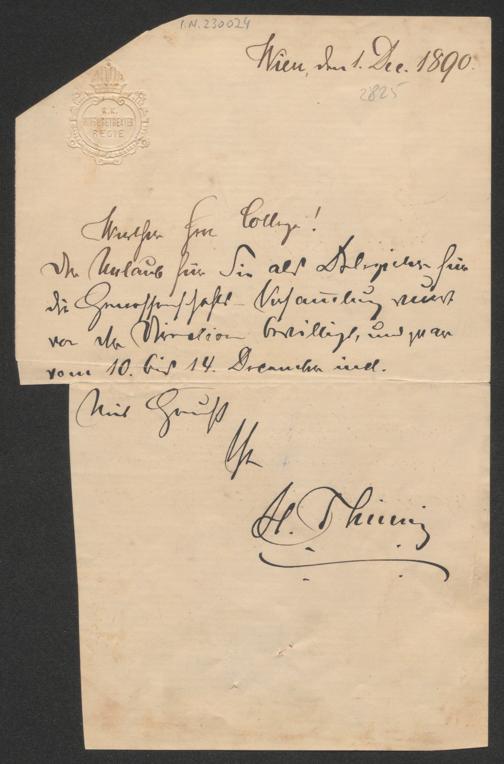 I.N. 230024
Wien, den 1. Dec. 1890.
2825
K.K.
HOFBURGTHEATER
REGIE
Werther Herr College!
Der Urlaub für Sie als Delegirter für
die Genossenschafts-Versammlung wird
von der Direction bewilligt, und zwar
vom 10. bis 14. December incl.
Mit Gruß
Ihr
H. Thimig